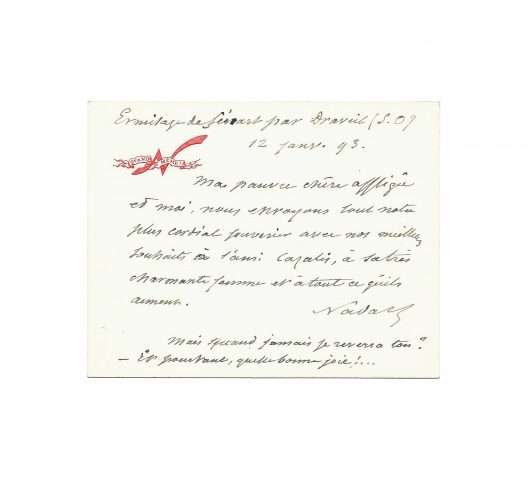 Ermitage de Sénart par Draveil (S. O)
12 janv. 93.
QUAND MÊME
Ma pauvre chère affligée
et moi, nous envoyons tout notre
plus cordial souvenir avec nos meilleurs
souhaits à l'ami Cazalis, à sa très
charmante femme et à tout ce qu'ils
aiment.
Nadar
Mais quand jamais se reverra-t-on?
— Et pourtant, quelle bonne joie!...